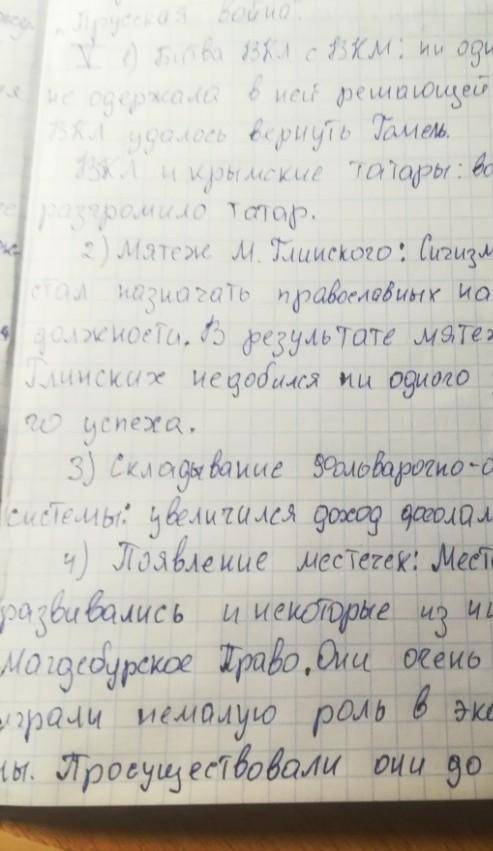 "Прусская война".
V 1) Битва ВКЛ с ВКМ: ни одн
не одержала в ней решающей
ВКЛ удалось вернуть Гомель.
ВКЛ и крымские татары: во
разгромило татар.
2) Мятеж М. Глинского: Сигизм
стал назначать православных на
должности. В результате мятеж
Глинских недобился ни одного
го успеха.
3) Складывание фольварочно-
системы: увеличился доход
4) Появление местечек: Мест
развивались и некоторые из ни
Магдебурское Право. Они очень
играли немалую роль в эко
ны. Просуществовали они до